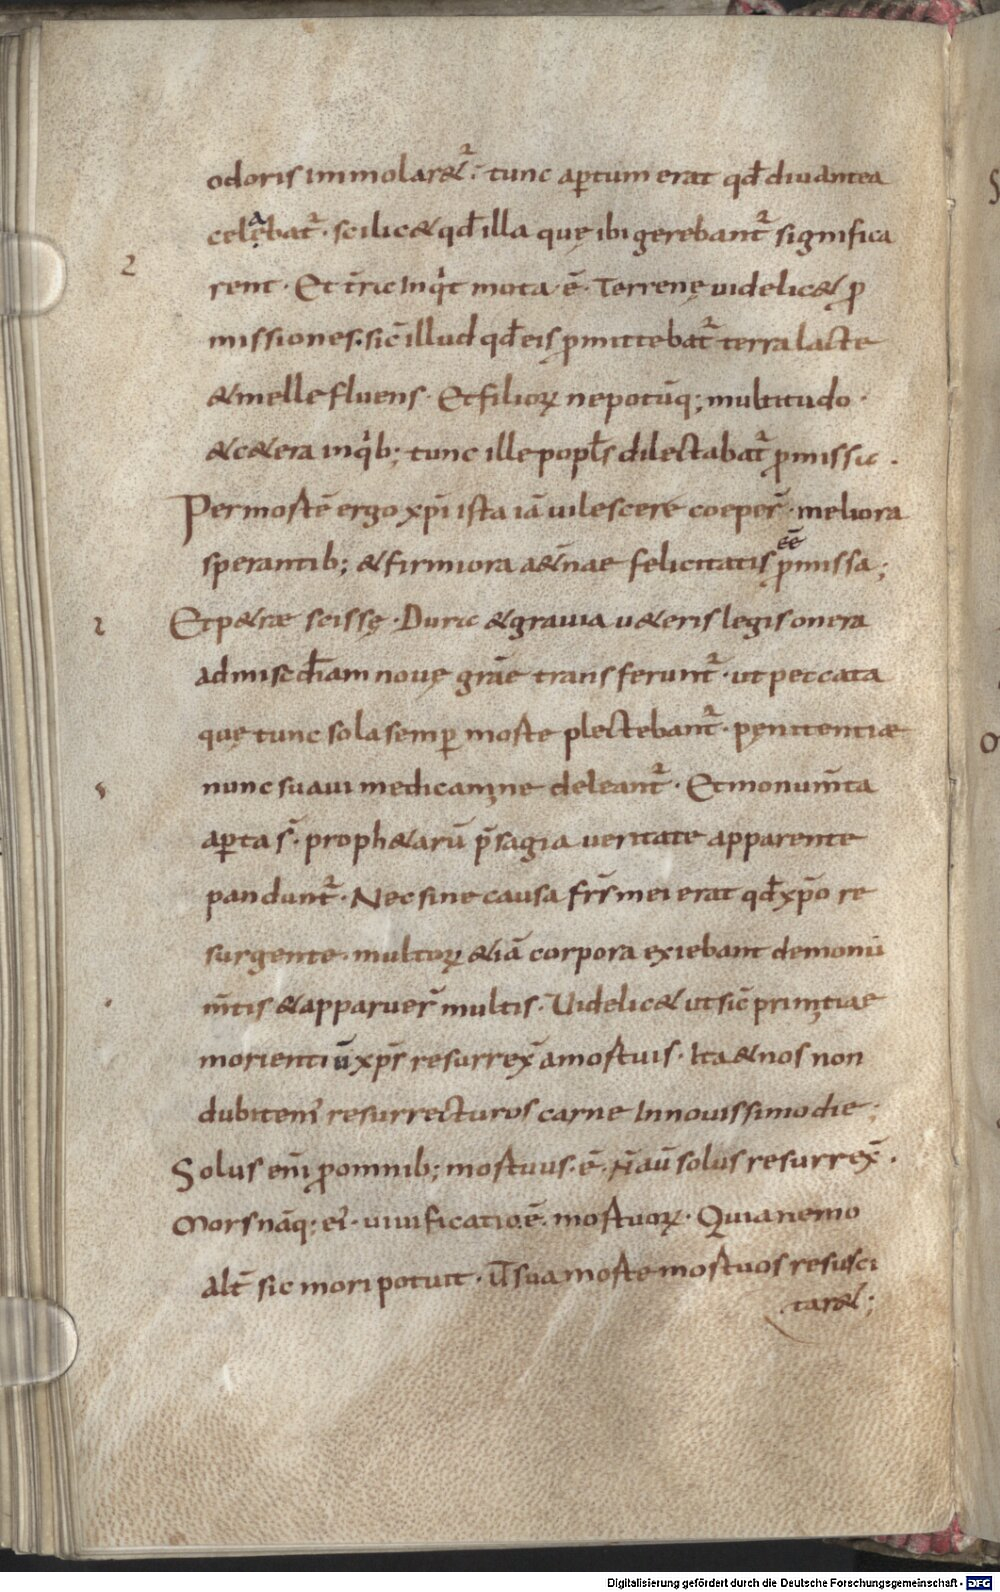 odoris immolar&᷑· tunc ap̲tum erat qđ diu antea
celębat᷑· scilic& qđ illa quę ibi gerebant᷑ significa
rent· Et t̄ric inqͥt mota· ē· Terrenę uidelic& ꝓ
missiones· sic̄ illud qđ eis ꝓmittebat᷑ terra lacte
& melle fluens· Et filioꝝ nepotūq; multitudo·
& c&era inqͥb; tunc ille popl̄s dilectabat᷑ ꝓmissic·
Per mortē ergo xp̄i ista iā uilescere coeper̄· meliora
sperantib; & firmiora a&n̄ae felicitatis ēē ꝓmissa;
Et p&ræ scissę· Duric & grauia u&eris legis onera
ad misc̄điam nouę gr̄ae transferunt᷑· ut peccata
quę tunc sola semp̲ morte plectebant᷑· pęnitentiæ
nunc suaui medicamine deleant᷑· Et monum̄ta
ap̲ta s̄· proph&arū p̄sagia ueritate apparente
pandunt᷑· Nec sine causa frs̄ mei erat qđ xp̄o re
surgente· multoꝝ &iā corpora exiebant demonu
m̄tis & apparuer̄ multis· Uidelic& ut sic̄ primitiae
morientiū xp̄s resurrex̄ a mortuis· Ita & nos non
dubitem᷒ resurrecturos carne in nouissimo die;
Solus eni̅ ꝓ omnib; mortuus· ē· N̄ aū solus resurrex̄·
Mors nāq; ei᷒· uiuificatio· ē· mortuoꝝ· Quia nemo
alt̄ sic mori potuit· ut̄ sua morte mortuos resusci
tar&;